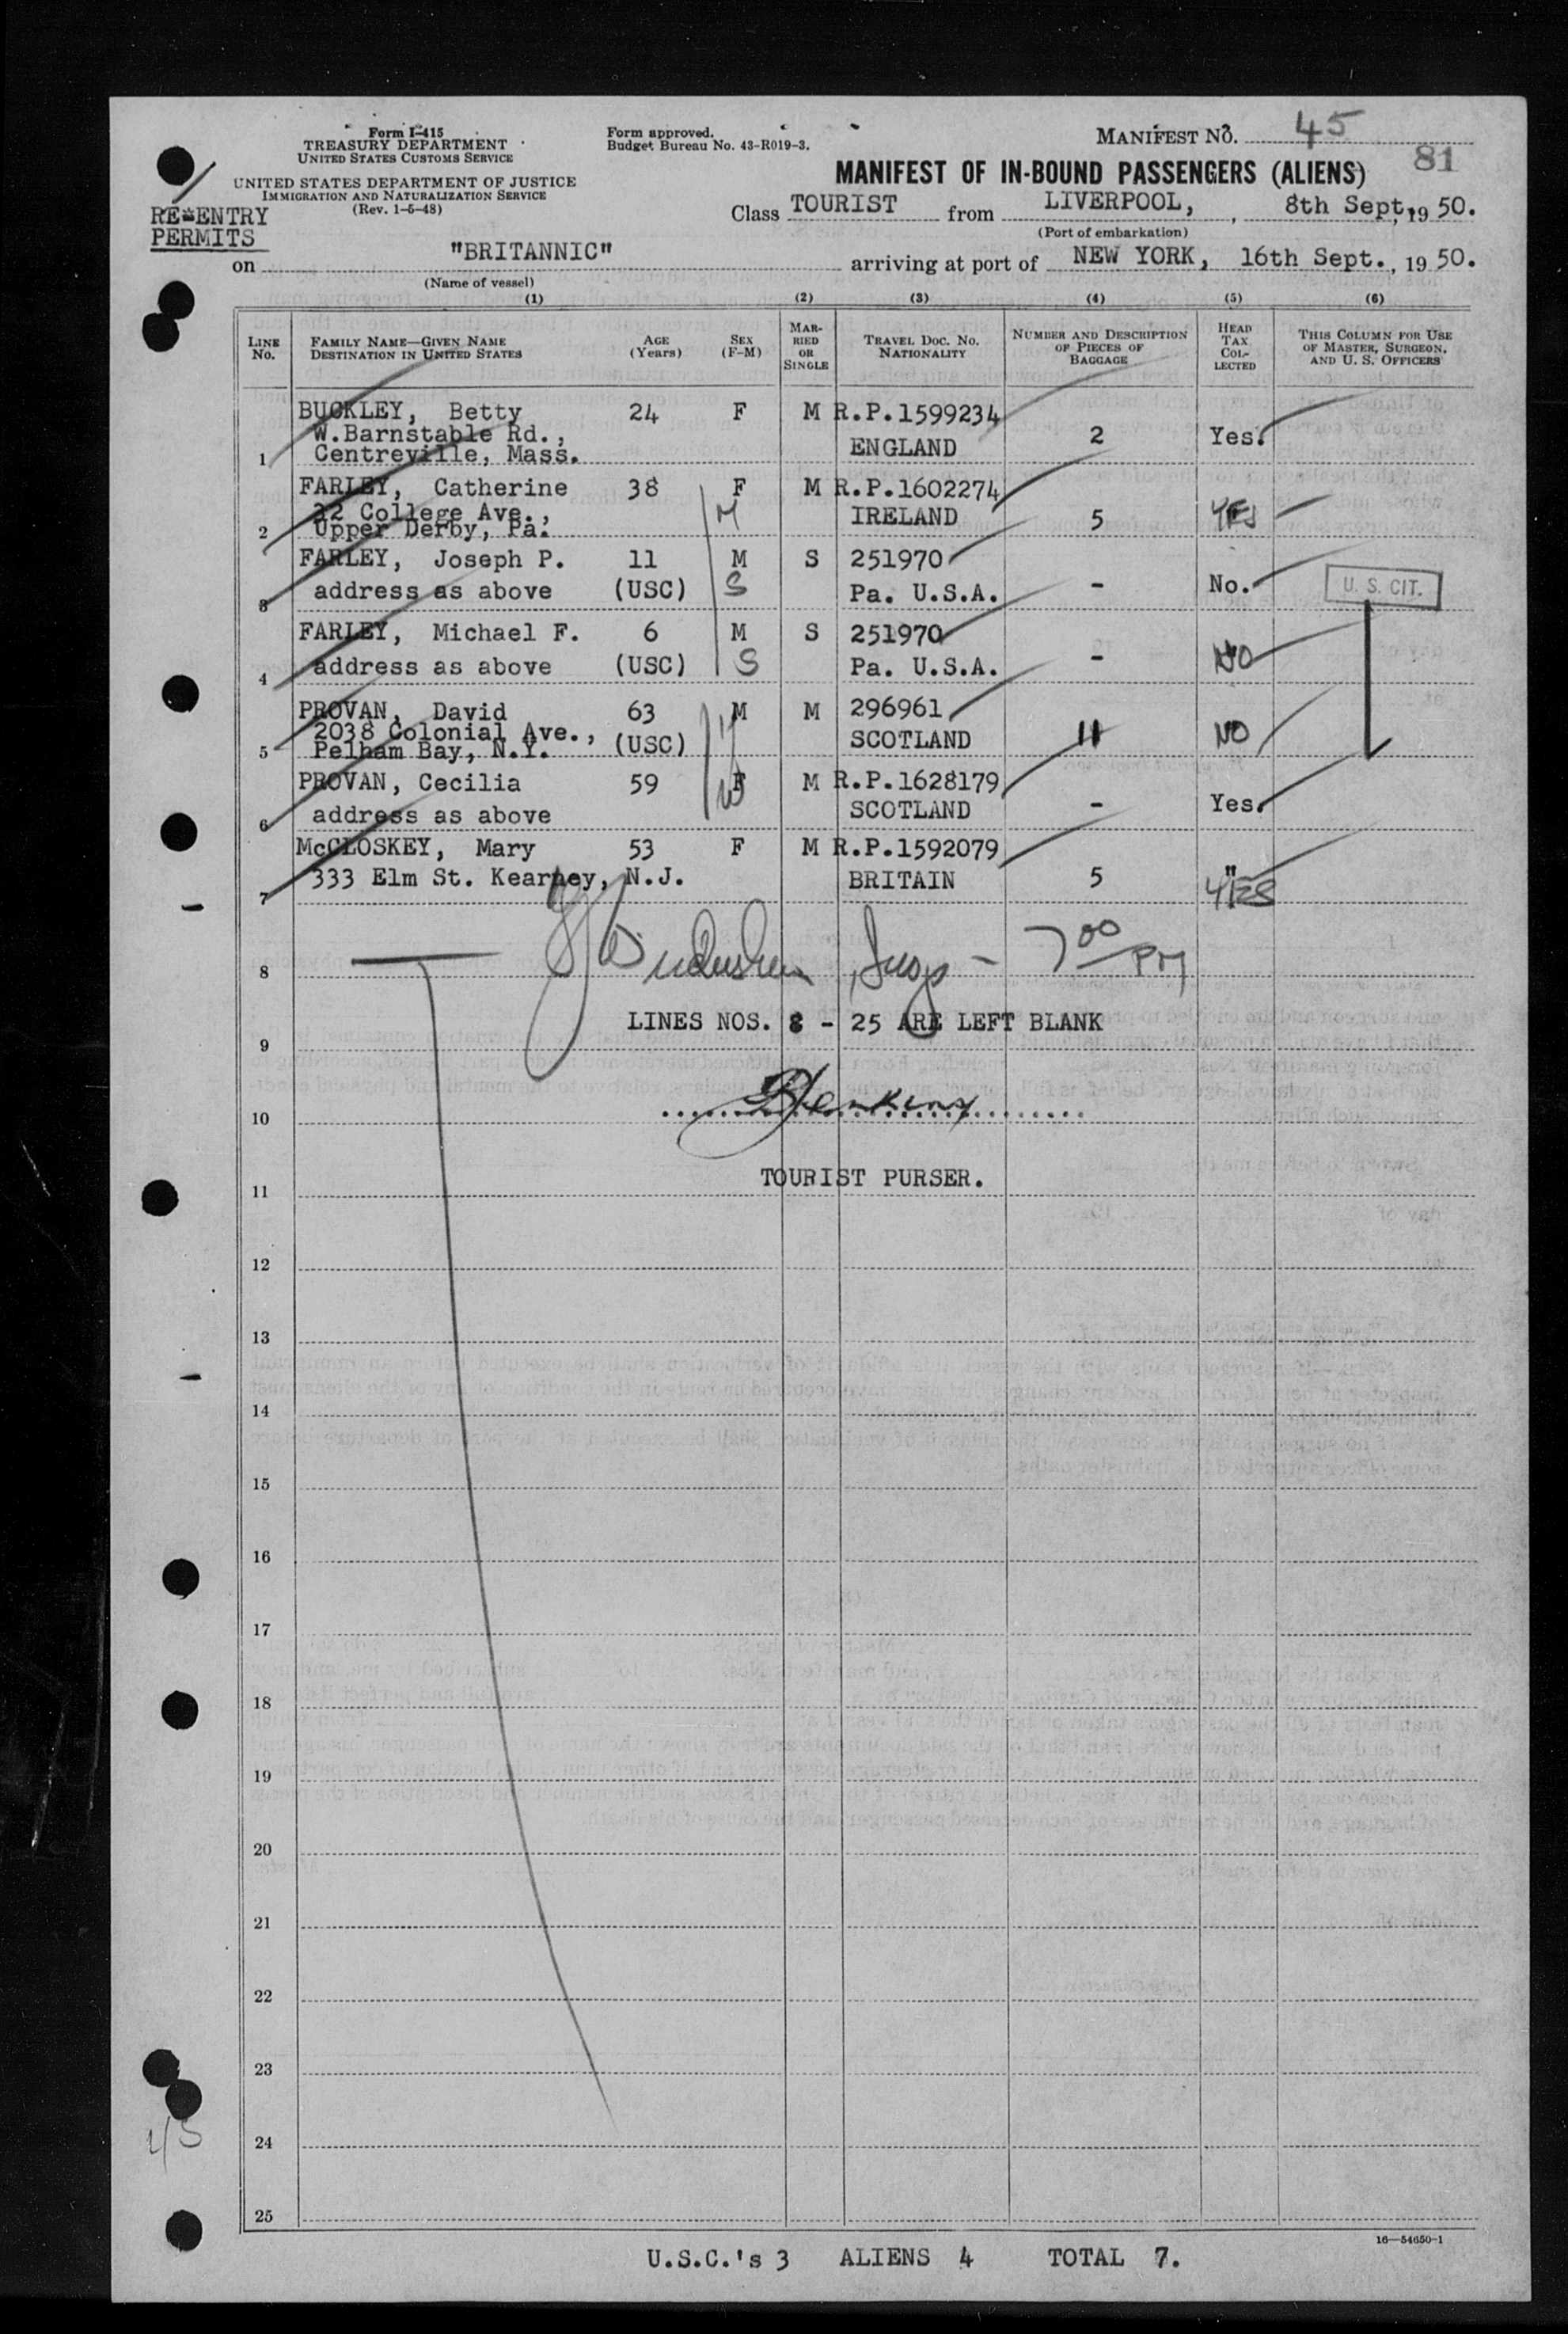 Form I-415
TREASURY DEPARTMENT
UNITED STATES CUSTOMS SERVICE
UNITED STATES DEPARTMENT OF JUSTICE
IMMIGRATION AND NATURALIZATION SERVICE
(Rev. 1-5-48)
RE-ENTRY
PERMITS
Form approved.
Budget Bureau No. 43-R019-3.
MANIFEST NO. 45
81
MANIFEST OF IN-BOUND PASSENGERS (ALIENS)
Class TOURIST from LIVERPOOL, , 8th Sept, 19 50.
(Port of embarkation)
on "BRITANNIC" arriving at port of NEW YORK, 16th Sept., 19 50.
(Name of vessel)
(1) (2) (3) (4) (5) (6)
LINE No. FAMILY NAME—GIVEN NAME DESTINATION IN UNITED STATES AGE (Years) SEX (F-M) MARRIED OR SINGLE TRAVEL DOC. NO. NATIONALITY NUMBER AND DESCRIPTION OF PIECES OF BAGGAGE HEAD TAX COLLECTED THIS COLUMN FOR USE OF MASTER, SURGEON, AND U. S. OFFICERS
BUCKLEY, Betty 24 F M R.P.1599234
W.Barnstable Rd., 2 Yes.
1 Centreville, Mass. ENGLAND
FARLEY, Catherine 38 F M R.P.1602274
22 College Ave., M IRELAND 5 YES
2 Upper Derby, Pa.
FARLEY, Joseph P. 11 M S 251970
3 address as above (USC) S Pa. U.S.A. - No. U. S. CIT.
FARLEY, Michael F. 6 M S 251970
4 address as above (USC) S Pa. U.S.A. - NO
PROVAN, David 63 M M 296961
2038 Colonial Ave., 11 NO
5 Pelham Bay, N.Y. (USC) SCOTLAND
PROVAN, Cecilia 59 F M R.P.1628179
6 address as above SCOTLAND - Yes.
McCLOSKEY, Mary 53 F M R.P.1592079
7 333 Elm St. Kearney, N.J. BRITAIN 5 " YES
8 Insp - 7 00 PM
LINES NOS. 8 - 25 ARE LEFT BLANK
9
Jenkins
10
TOURIST PURSER.
11
12
13
14
15
16
17
18
19
20
21
22
23
24
45
25
16—54650-1
U.S.C.'s 3 ALIENS 4 TOTAL 7.